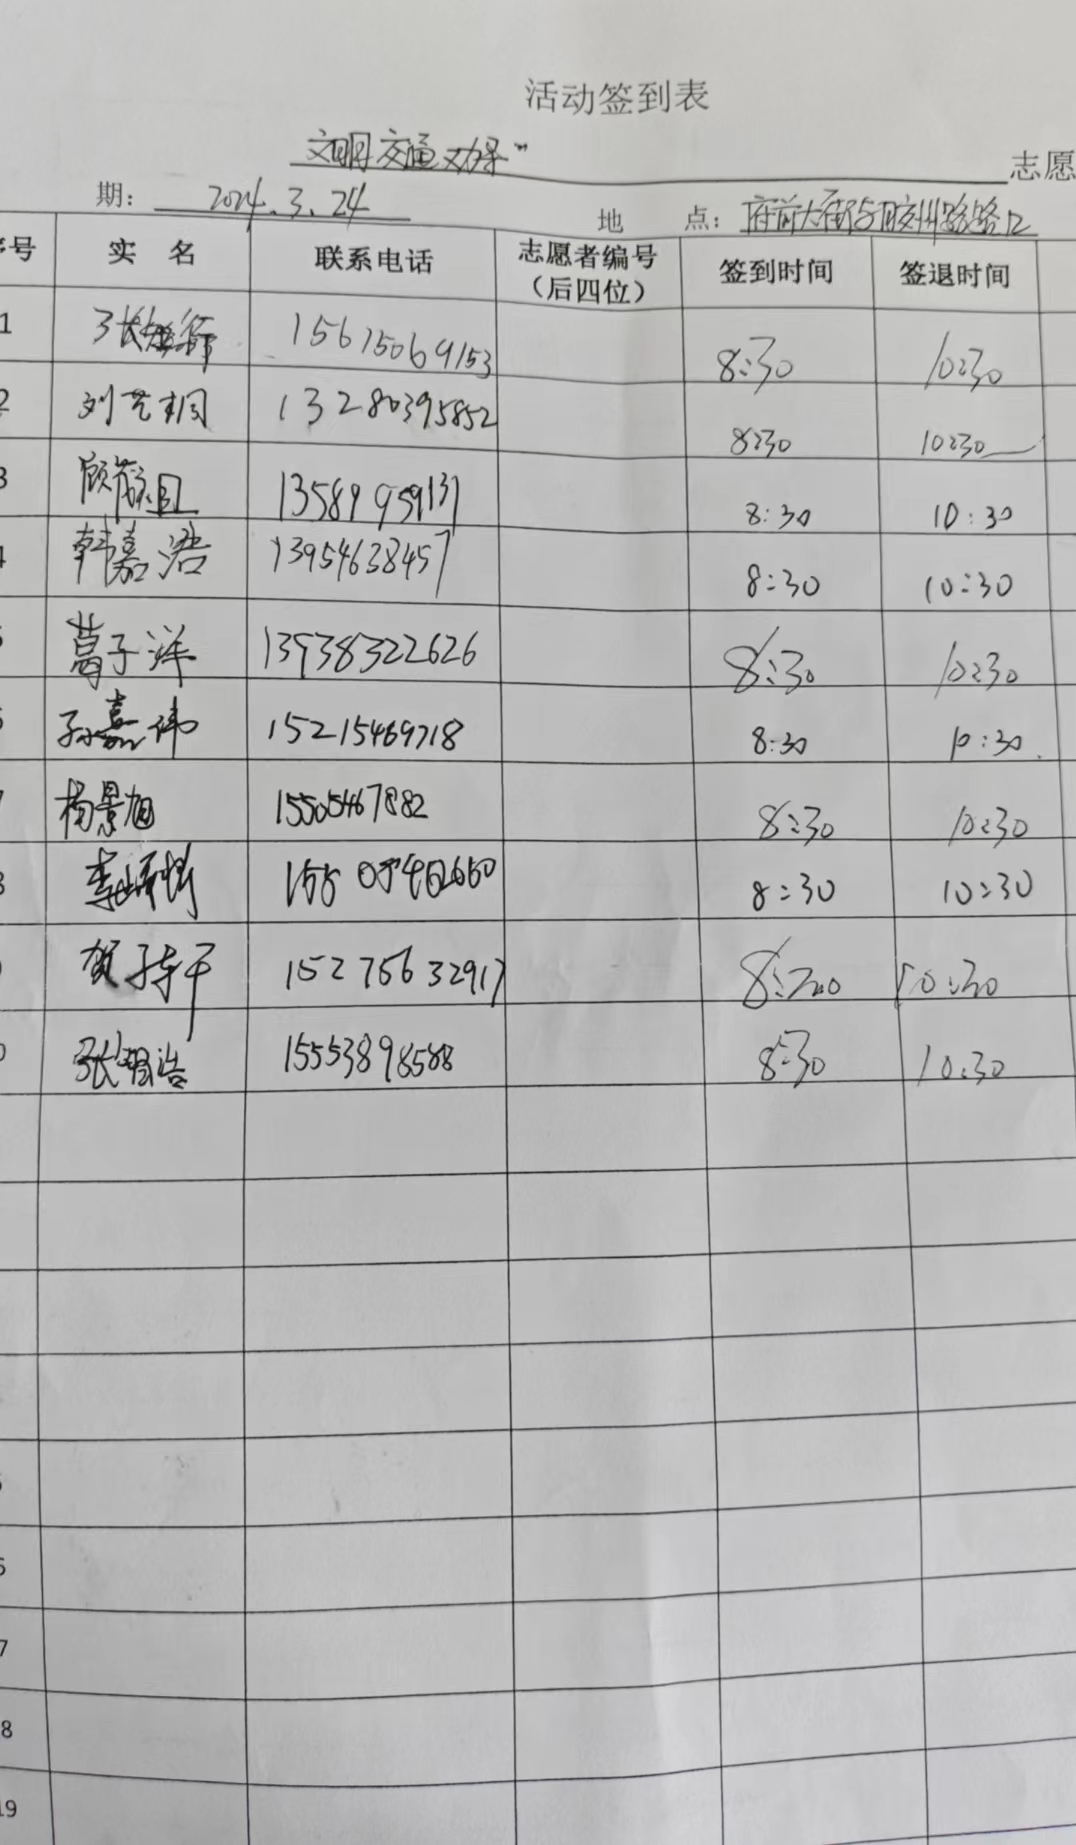 活动签到表
文明交通劝导" 志愿
期: 2024.3.24 地 点: 府前大街与胶州路路口
序号 实 名 联系电话 志愿者编号（后四位） 签到时间 签退时间
1 15615069153 8:30 10:30
2 刘艺桐 13280395852 8:30 10:30
3 13589959137 8:30 10:30
韩嘉浩 13954638457 8:30 10:30
葛子洋 13938322626 8:30 10:30
孙嘉伟 15215469718 8:30 10:30
杨景旭 15505467882 8:30 10:30
8:30 10:30
贺 152756632917 8:30 10:30
15553898588 8:30 10:30
7
8
19